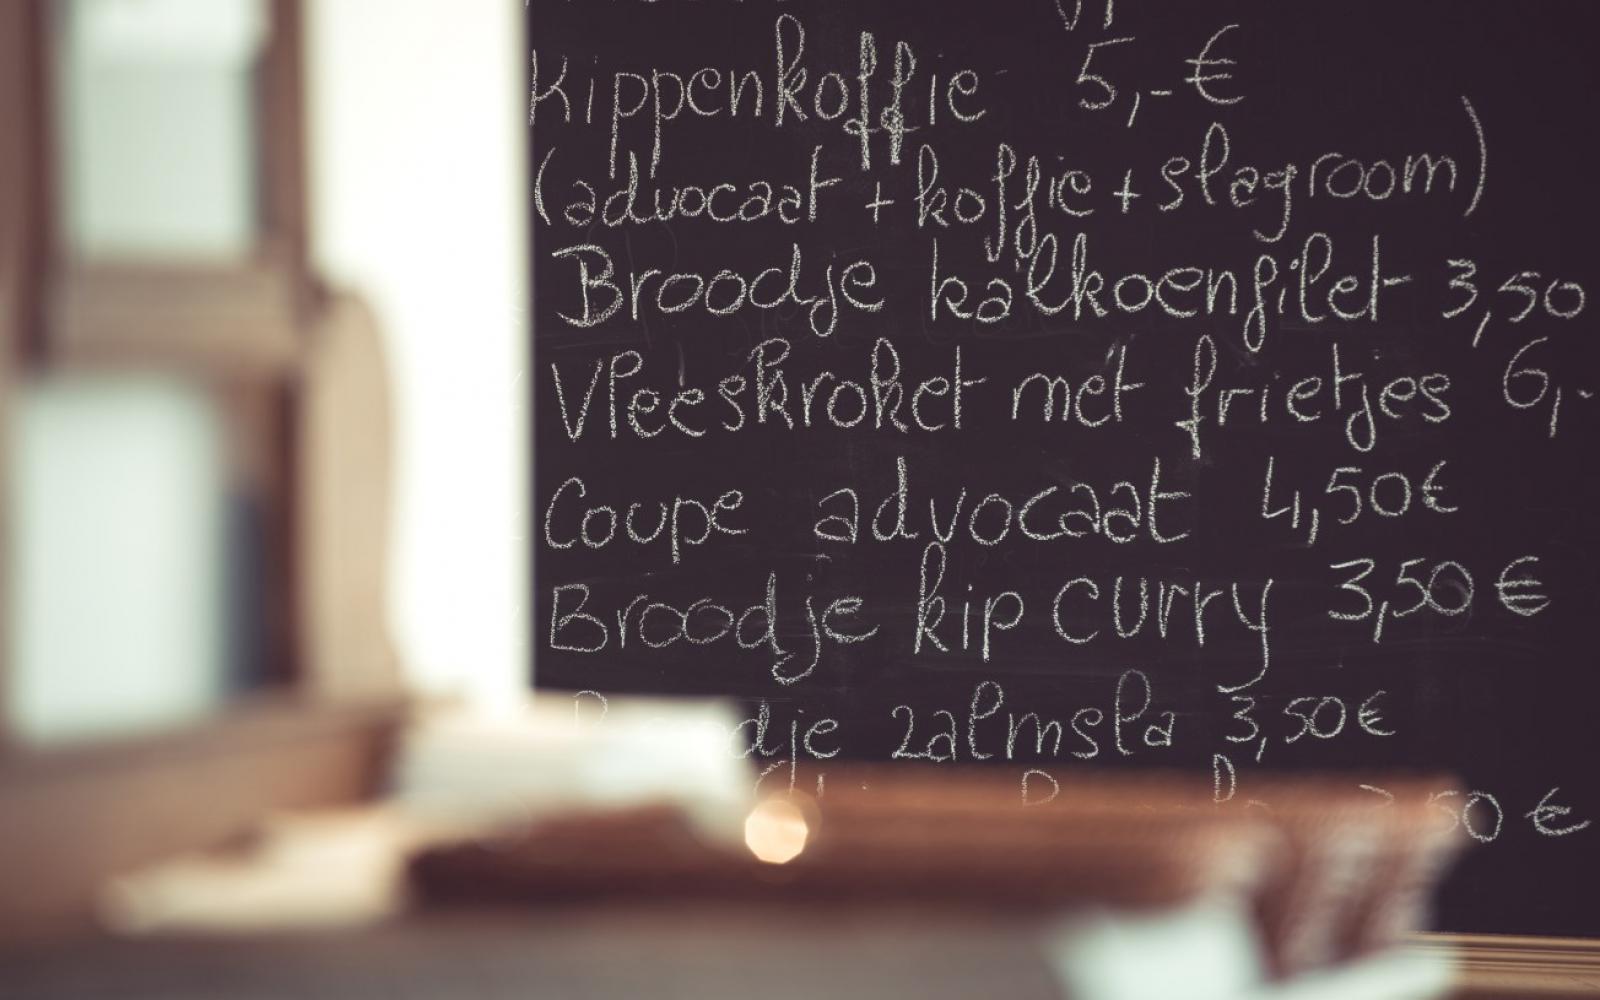 Kippenkoffie 5,-€
(advocaat + koffie + slagroom)
Broodje kalkoenfilet 3,50
Vleeskroket met frietjes 6,-
Coupe advocaat 4,50€
Broodje kip curry 3,50 €
zalmsla 3,50€
€